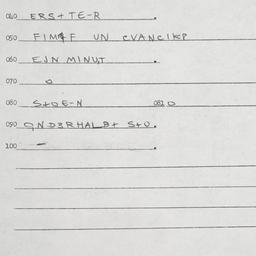 040 ERS+TE-R
050 FIM4F UN EVANCIKP
060 EJN MINUT
070 0
080 S+OE-N 082 0
090 QND3RHALB+ S+O.
100 -